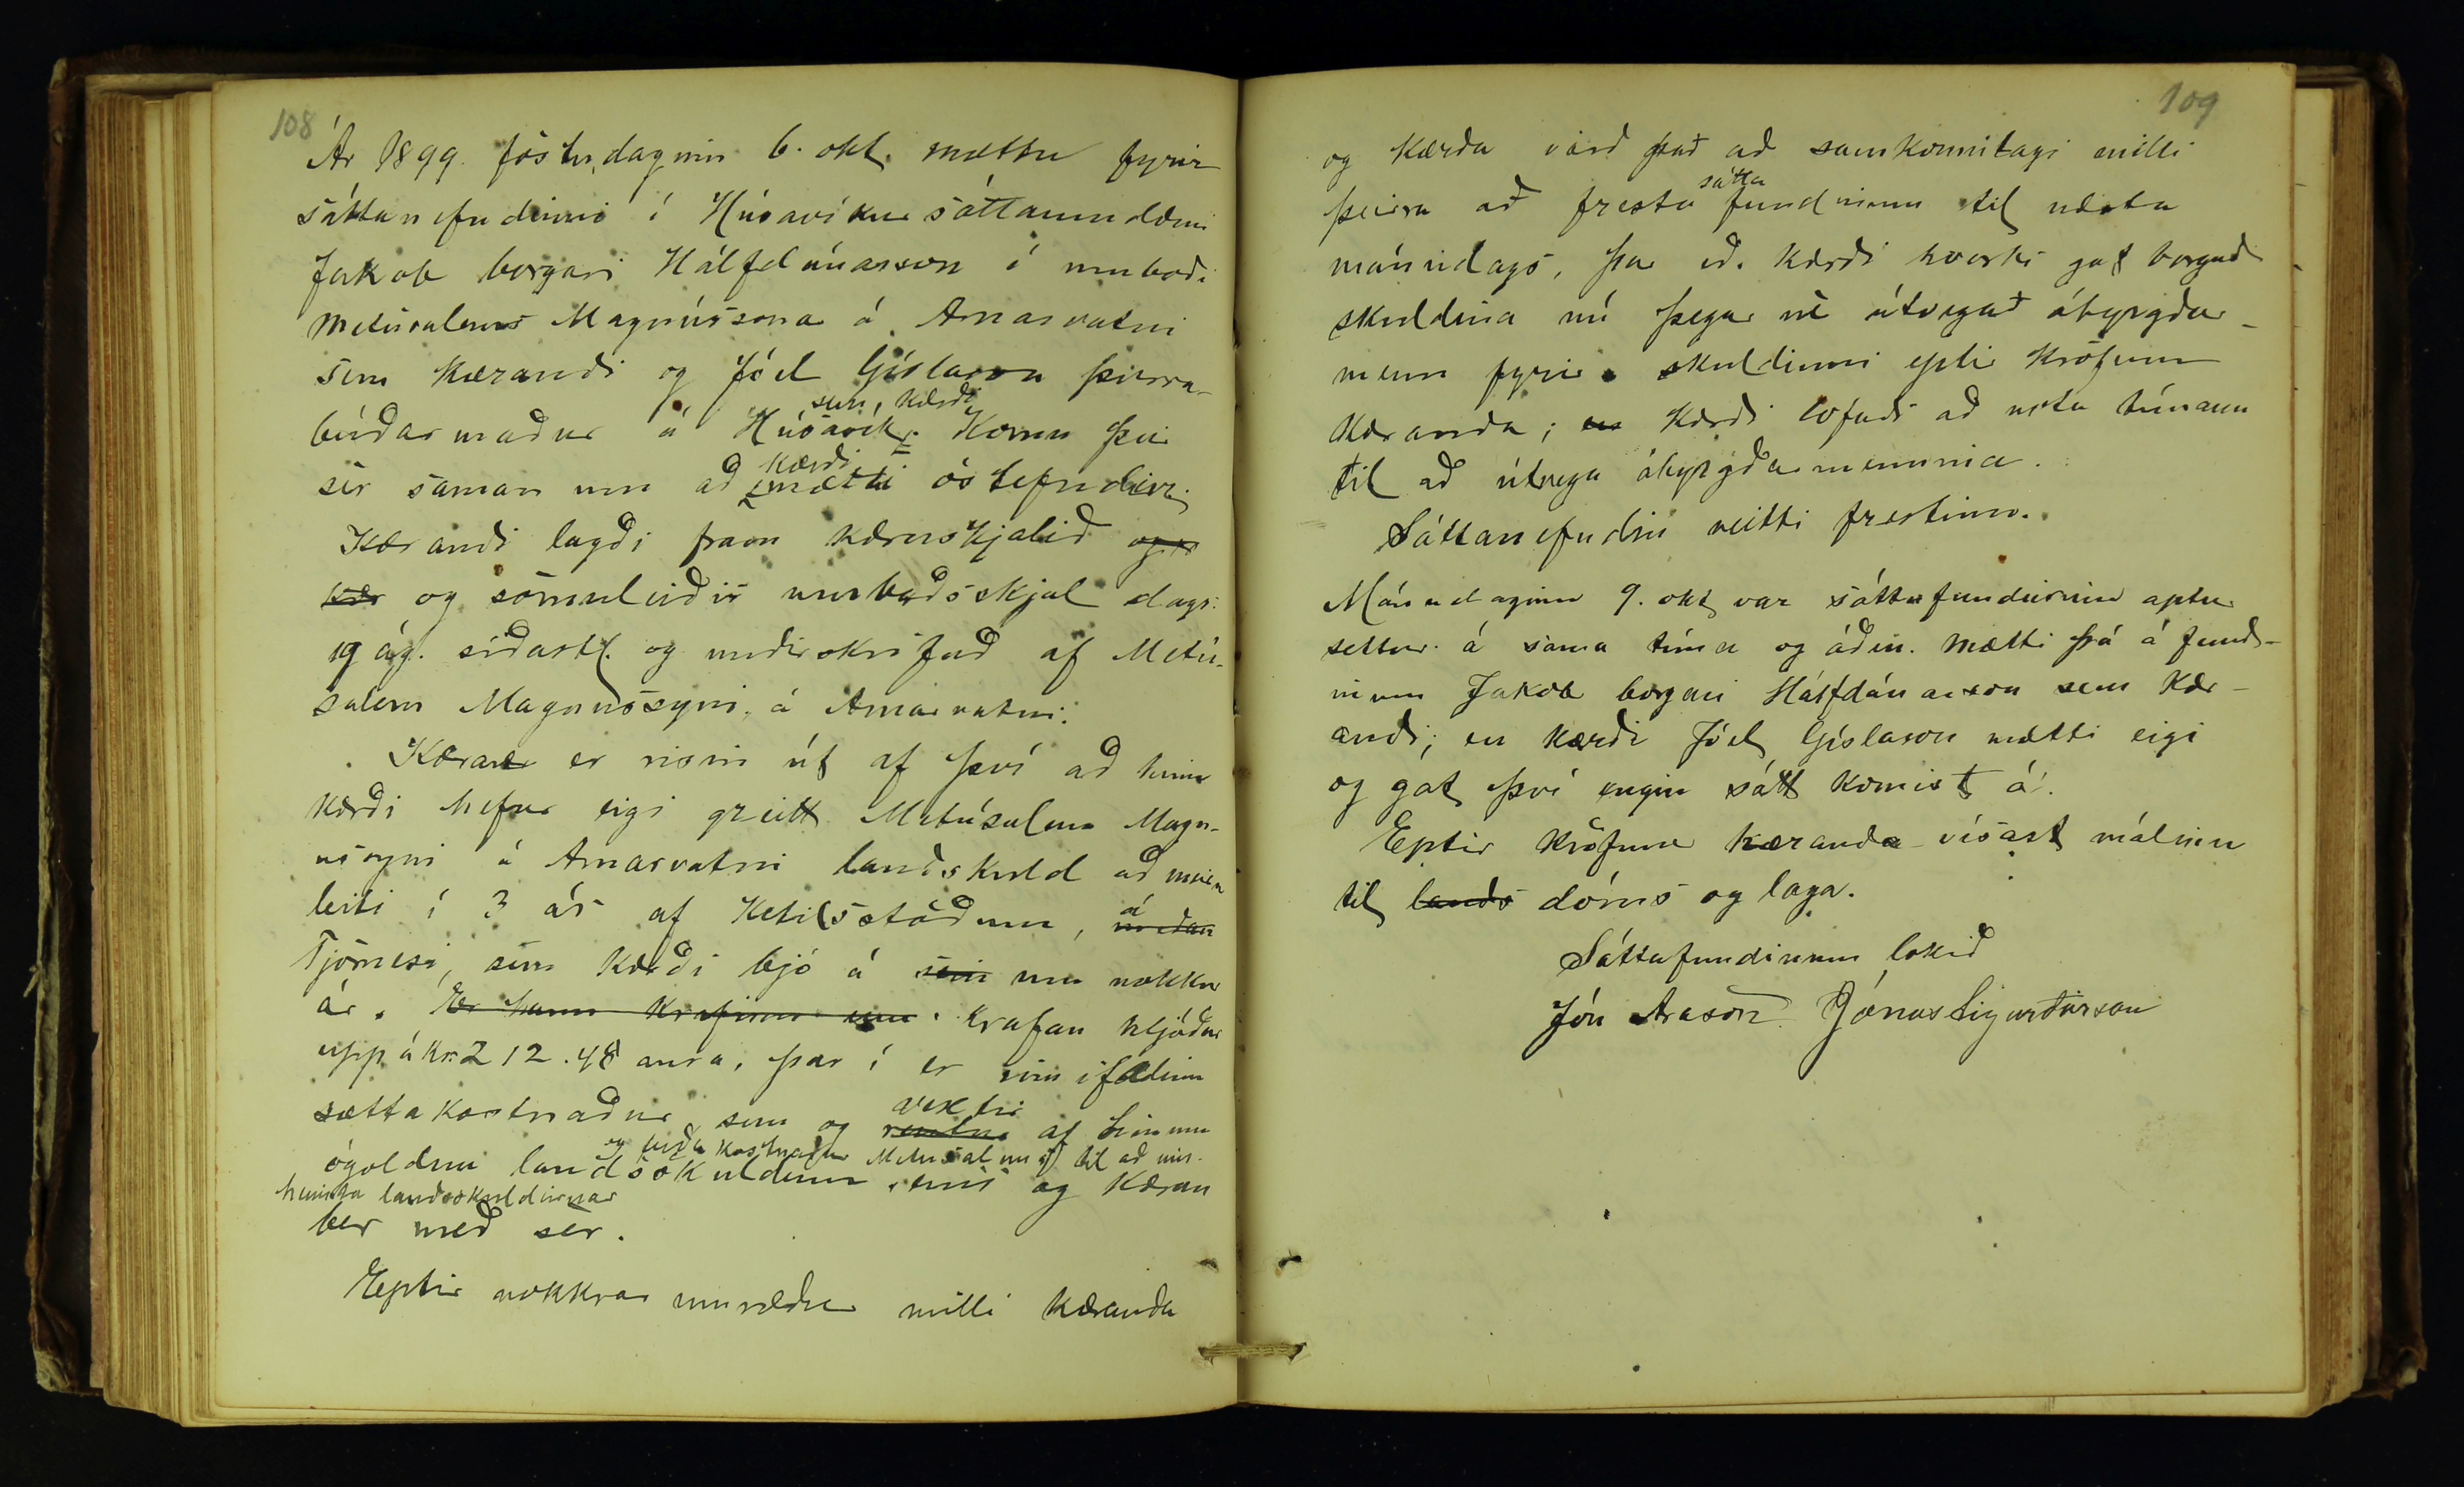 108
Ár 1899 föstudaginn 6. okt. mættu fyrir
sáttanefndinni í Húsavíkur sáttaumdæmi
Jakob borgari Hálfdánarson í umboði
Metúsalems Magnússonar á Arnarvatni
sem kærandi og Jóel Gíslason þurra-
sem, kærði
búðarmaður á Húsavík. Komu þeir
kærði
sér saman um að mætti óstefndur.
Kærandi lagði fram kæruskjalið og
og sömuleiðis umboðsskjal dags.
19 ág. síðastl. og undirskrifað af Metú-
salem Magnússyni, á Arnarvatni.
Kæran er risin út af því að hinn
kærði hefur eigi greitt Metúsalem Magn-
ússyni á Arnarvatni landskuld að
leiti í 3 ár af Ketilsstöðum, meðan
á
Tjörnesi, sem kærði bjó á sem um nokkur
ár. Er hann krafinn um. krafan hljóðar
upp á kr. 212.48 aura, þar í er innifalinn
vextir
sáttakostnaður sem og rentur af hinum
og ferðakostnaður Metúsalems til að inn-
ógoldnu landsskuldum, eins og kæran
heimta landsskuldirnar
ber með sér.
Eptir nokkrar umræður milli kæranda
109
og kærða varð það að samkomulagi milli
sátta
þeirra að fresta fundinum til næsta
mánudags, þar eð kærði hvorki gat borgað
skuldina nú þegar né útvegað ábyrgðar-
menn fyrir skuldinni eptir kröfum
kæranda; en kærði lofaði að nota tímann
til að útvega ábyrgðarmennina.
Sáttanefndin veitti frestinn.
Mánudaginn 9. okt var sáttafundurinn aptur
settur á sama tíma og áður. Mætti þá á fund-
inum Jakob borgari Hálfdánarson sem kær-
andi, en kærði Jóel Gíslason mætti eigi
og gat því engin sátt komist á.
Eptir kröfum kæranda vísast málinu
til lands dóms og laga.
Sáttafundinum lokið
Jón Arason Jónas Sigurðsson